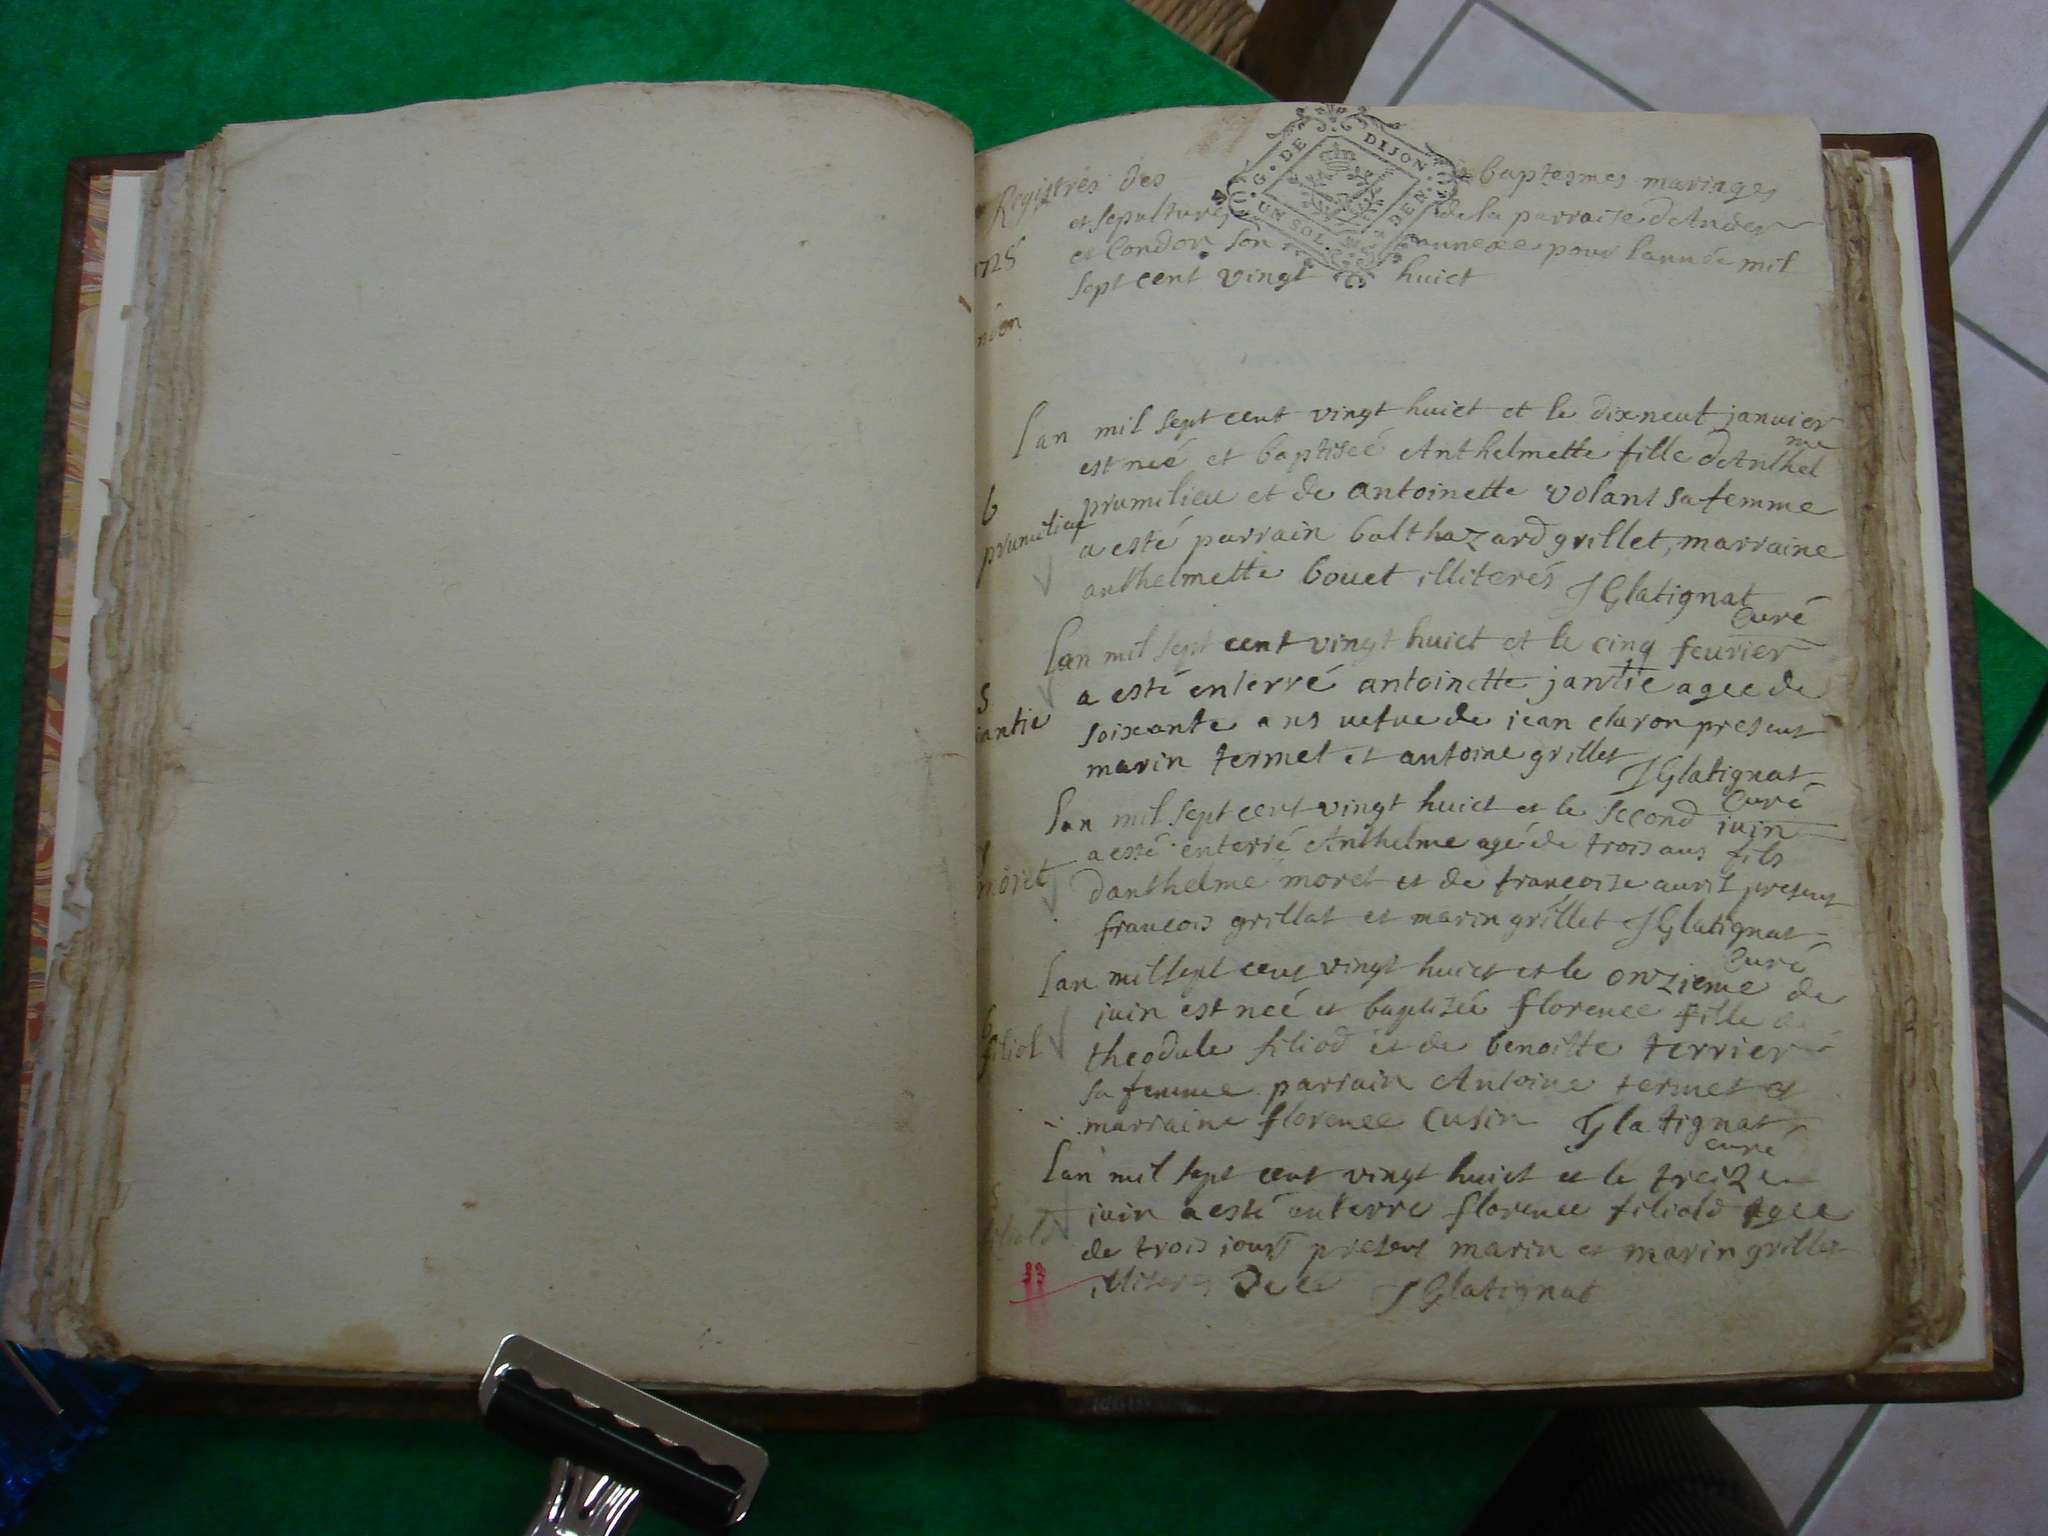 G. DE DIJON
UN SOL. DEN.
Registres des baptesmes mariages
et sepultures de la parroise dAnder
1728
et Condon son annexe pour lannée mil
sept cent vingt huict
ndon
lan mil sept cent vingt huict et le dixneuf januier
est neé et baptiseé Anthelmette fille dAnthel
me
b
prumilieu et de antoinette volant sa femme
prumilieu
a esté parrain balthazard grillet, marraine
anthelmette bouet illiterés J Glatignat
Curé
lan mil sept cent vingt huict et le cinq feurier
S
a esté enterré antoinette jantie agee de
jantie
soixante ans uefue de iean claron present
marin termet et antoine grillet J Glatignat
Curé
lan mil sept cent vingt huict et le second iuin
a esté enterré Anthelme agé de trois ans fils
moret
danthelme moret et de francoise auril present
francois grillat et marin grillet J Glatignat
Curé
lan mil sept cent vingt huict et le onzieme de
b
iuin est neé et baptizée florence fille de
filiol
theodule filiod et de benoitte terrier
sa femme parrain Antoine termet et
marraine florence Cusin Glatignat
curé
lan mil sept cent vingt huict et le treize
iuin a esté enterre florence filiold agee
filiold
de trois iours present marin et marin grillet
illiteres J Glatignat